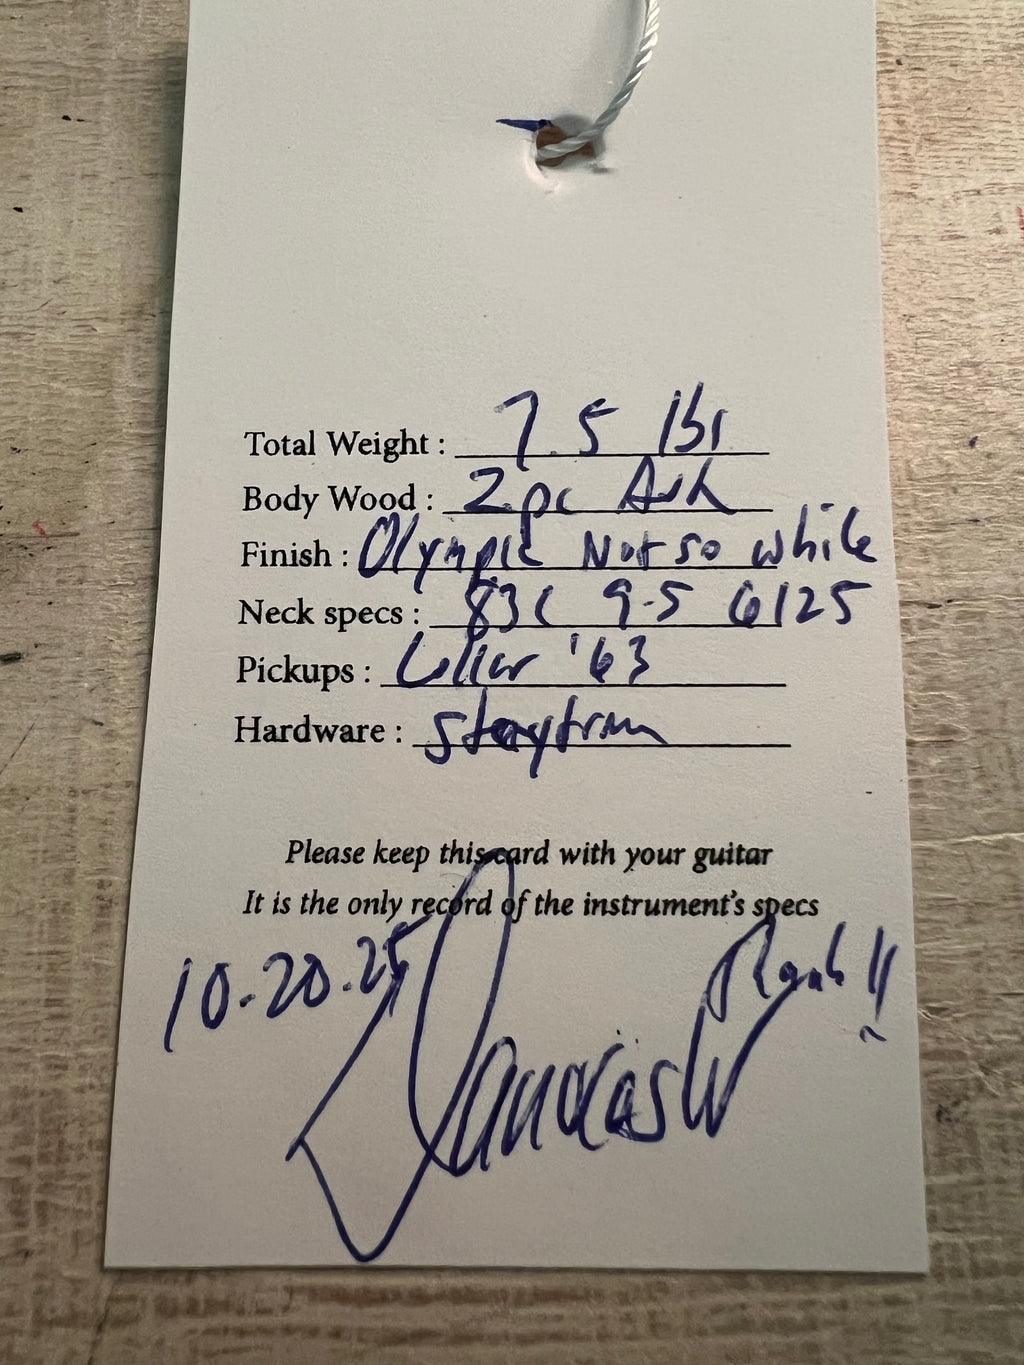 Total Weight : 7.5 lbs
Body Wood : 2 pc Ash
Finish : Olympic Not so white
Neck specs : 83C 9.5 6125
Pickups : Lollar '63
Hardware : Staytrem
Please keep this card with your guitar
It is the only record of the instrument's specs
10.20.25